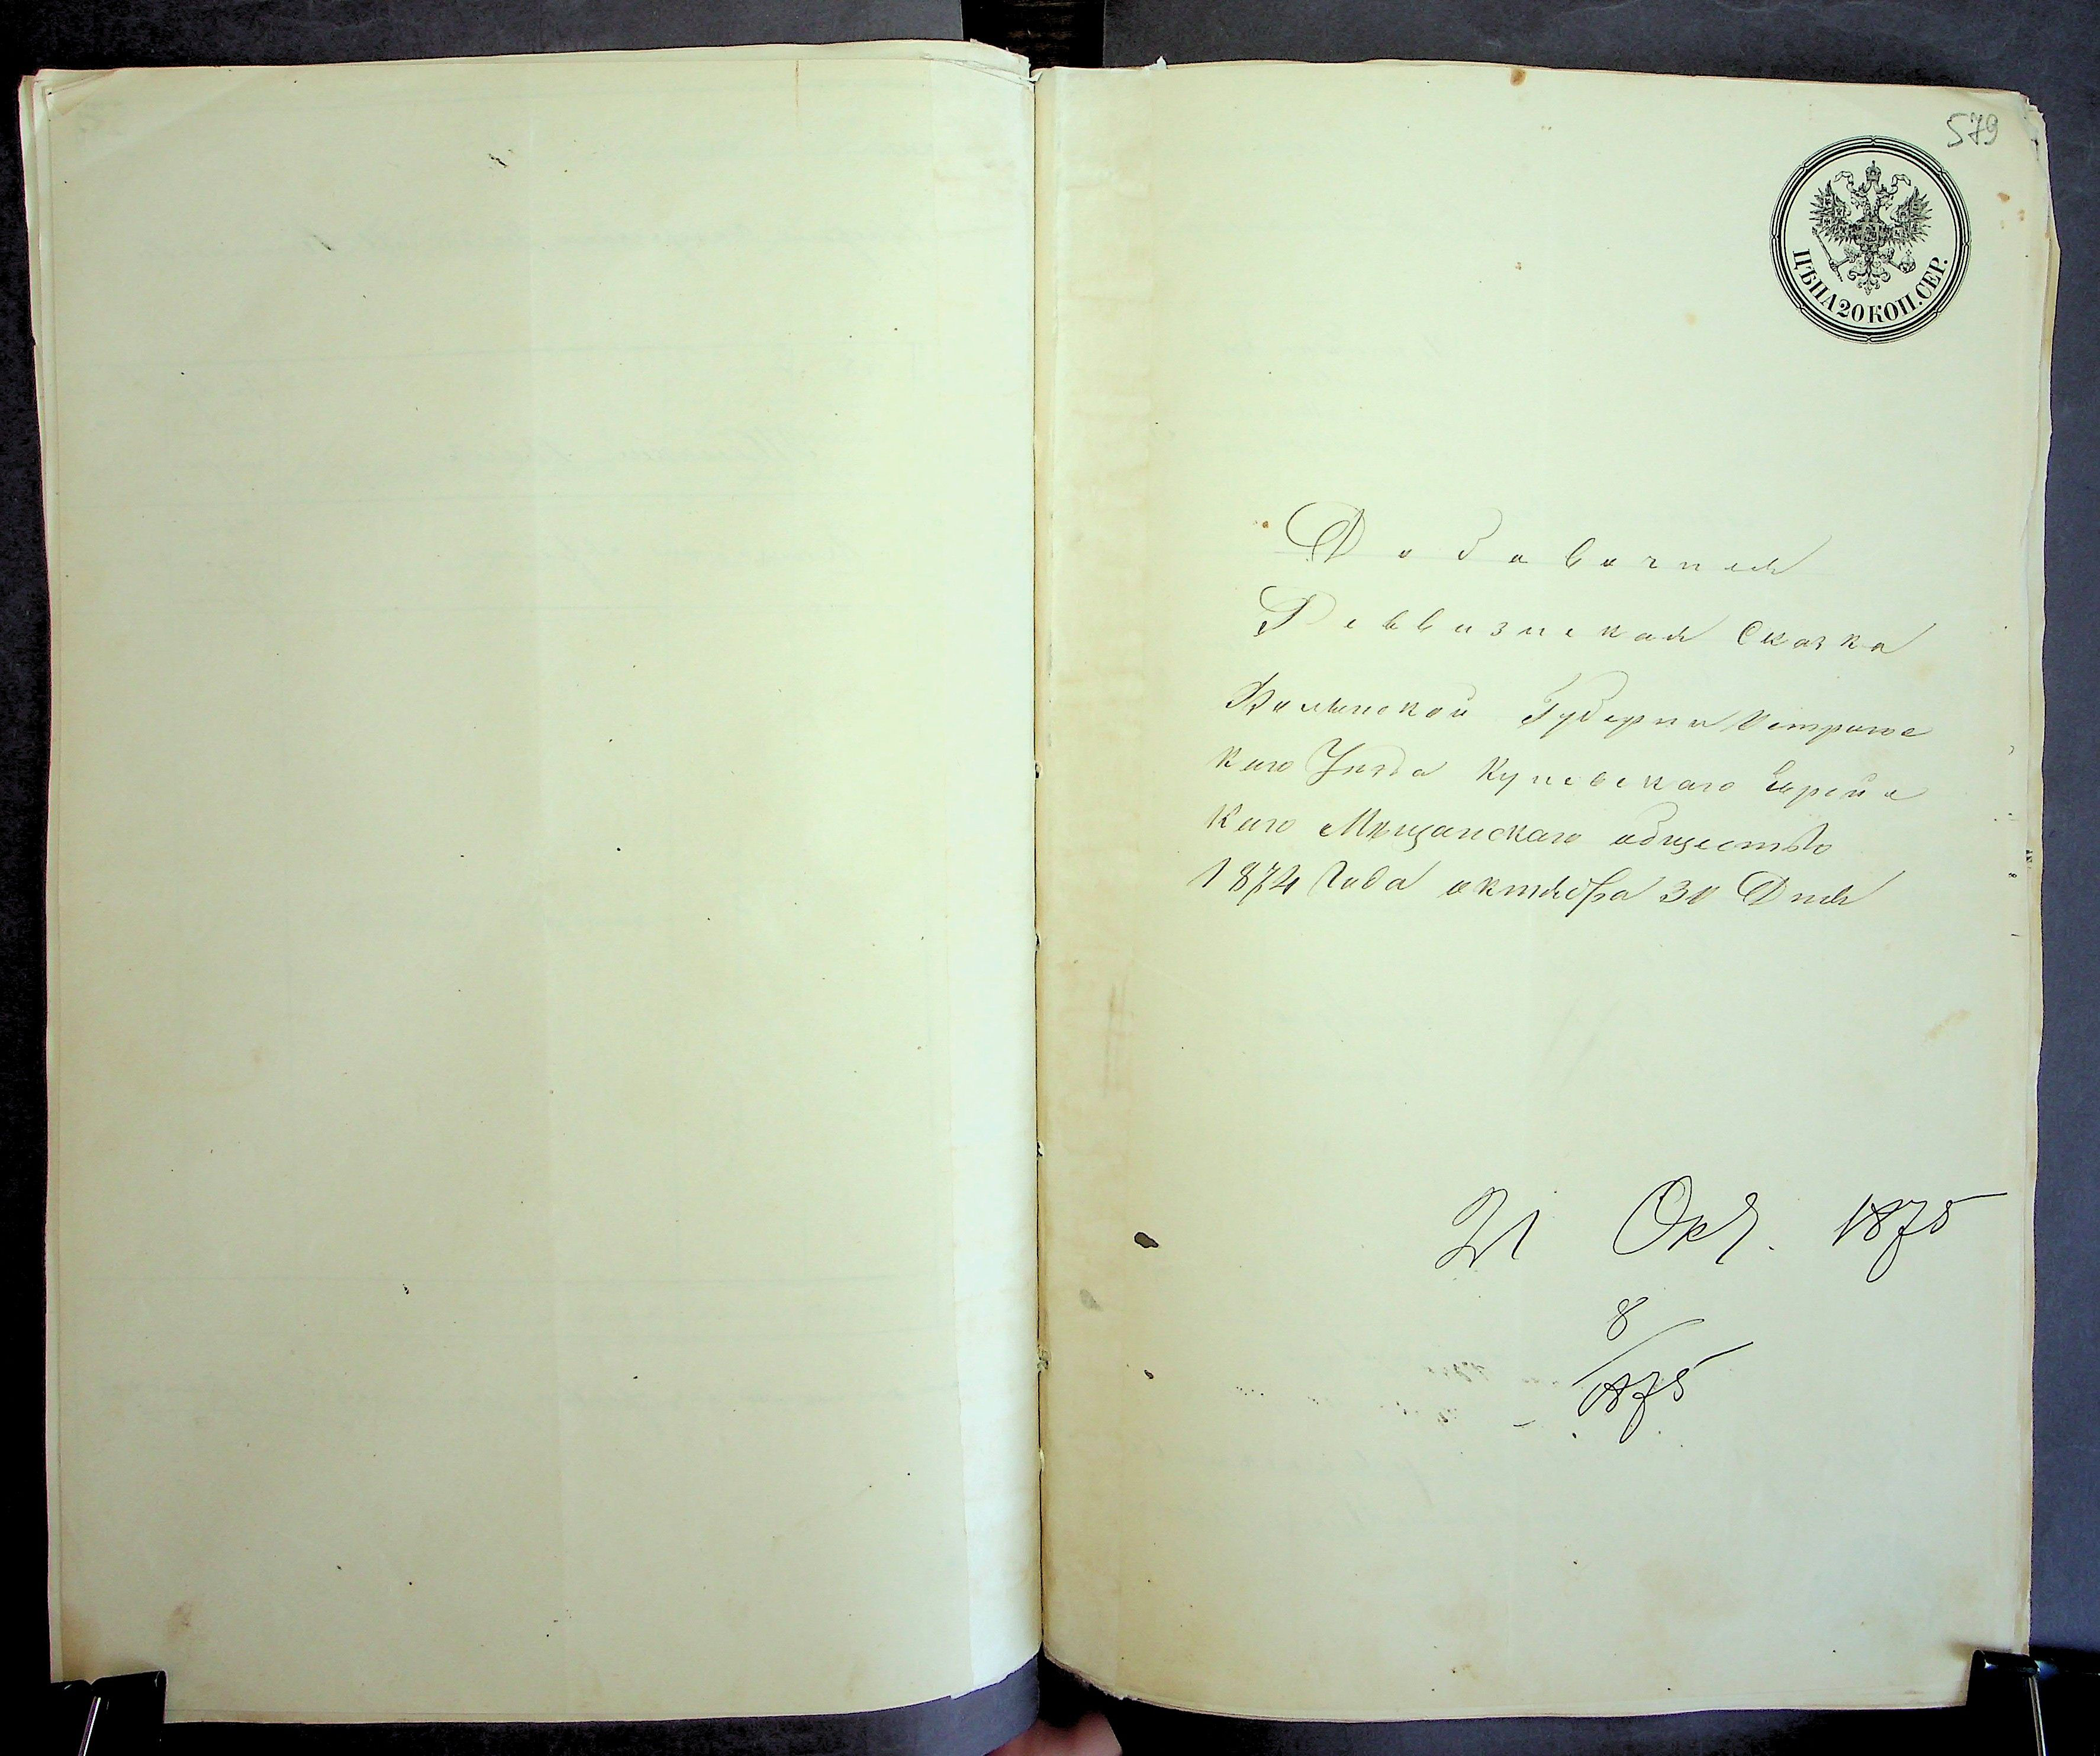 579
ЦѢНА 20 КОП. СЕР.
Добавочная
Реввизская Сказка
Волынской Губернии Острожс
каго Уезда Купельскаго Еврейс
каго Мещанскаго общества
1874 Года октября 30 Дня
21 Окт. 1875
8
1875